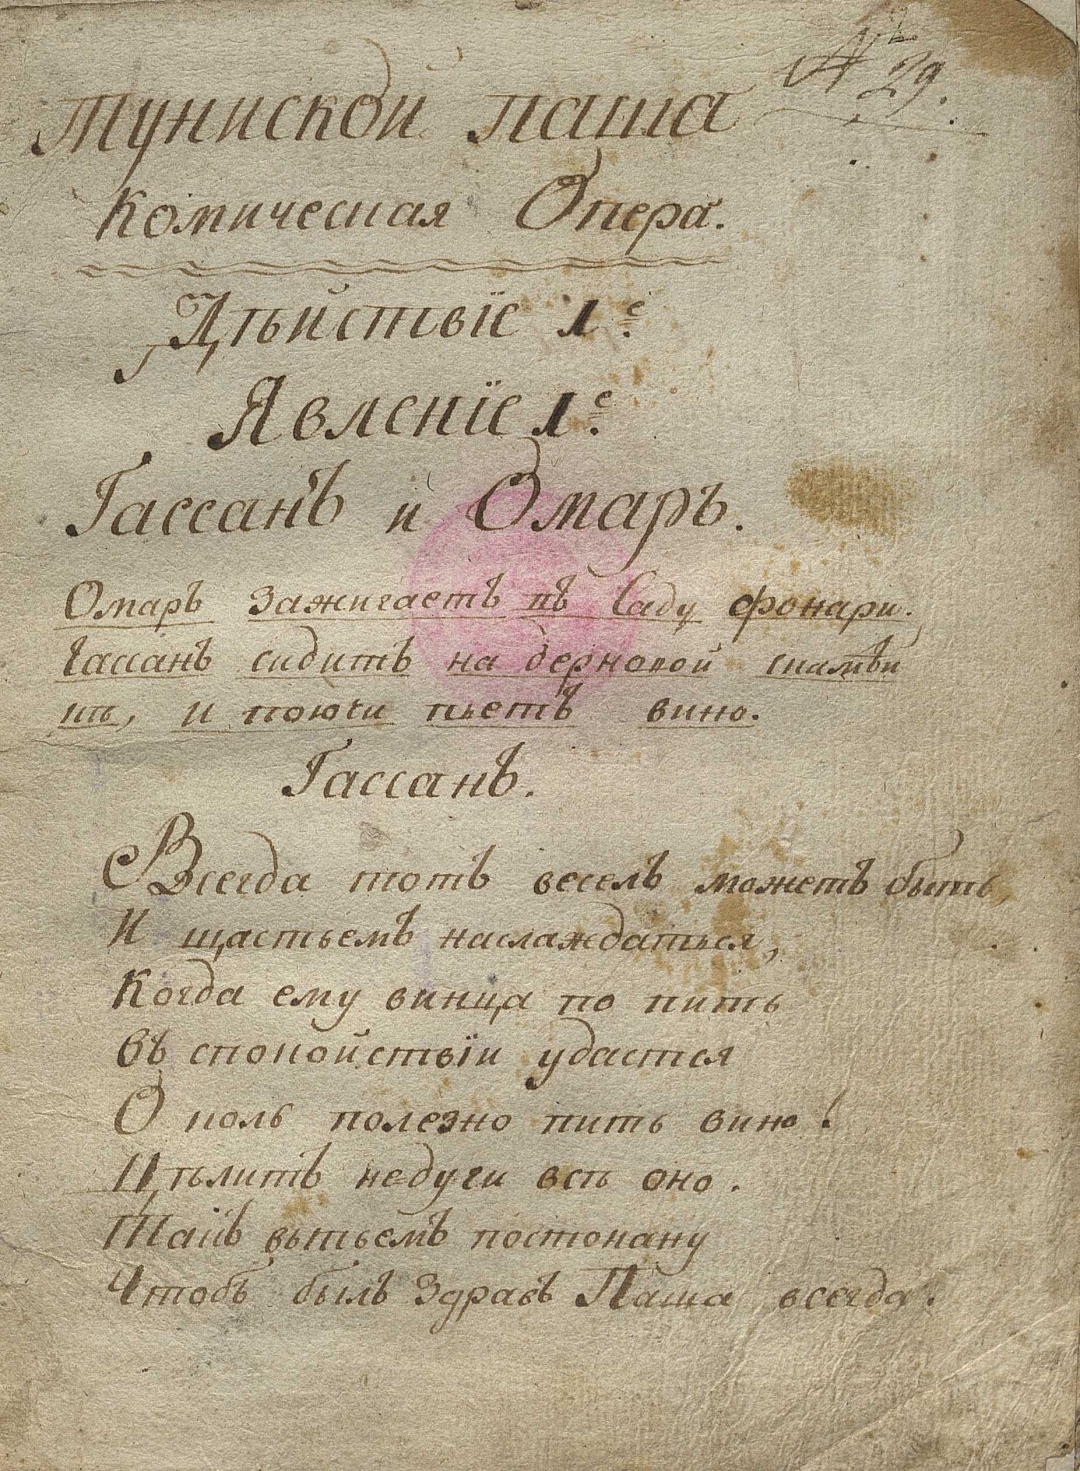 № 29.
Тунискои паша
Комическая Опера.
Дѣйствіе 1е
Явленіе 1е
Гассанъ и Омаръ.
Омаръ зажигаетъ въ Саду фонари.
Гассанъ сидитъ на дерновой скамѣй
кѣ, и поючи пьетъ вино.
Гассанъ.
Всегда тотъ веселъ можетъ быть,
И щастьемъ наслаждаться,
Когда ему винца по пить
въ спокойствіи удастся
О коль полезно пить вино!
Цѣлитъ недуги всѣ оно.
выпьемъ постокану
Чтобъ былъ здравъ Паша всегда.